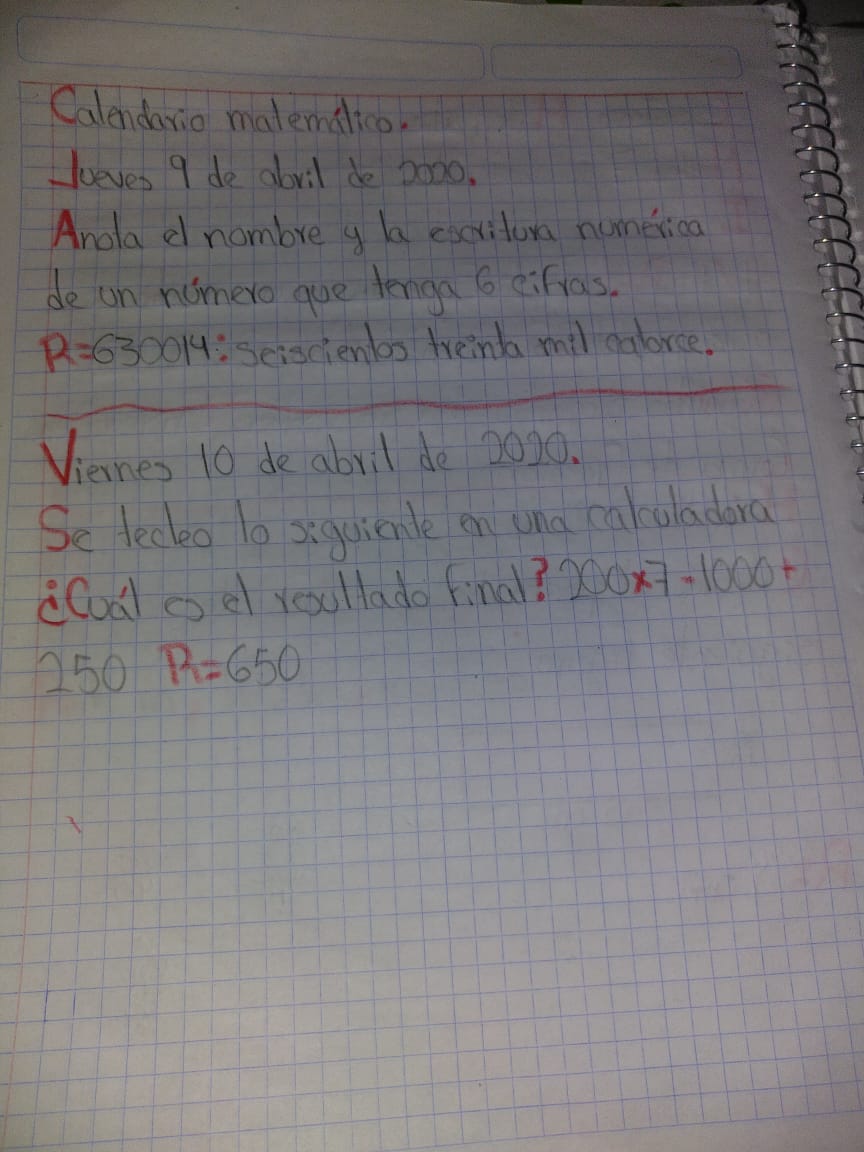 Calendario matemático.
Jueves 9 de abril de 2020.
Anota el nombre y la escritura numérica
de un número que tenga 6 cifras.
R=630014: seiscientos treinta mil catorce.
Viernes 10 de abril de 2020.
Se tecleo lo siguiente en una calculadora
¿Cuál es el resultado final? 200x7-1000+
250 R=650